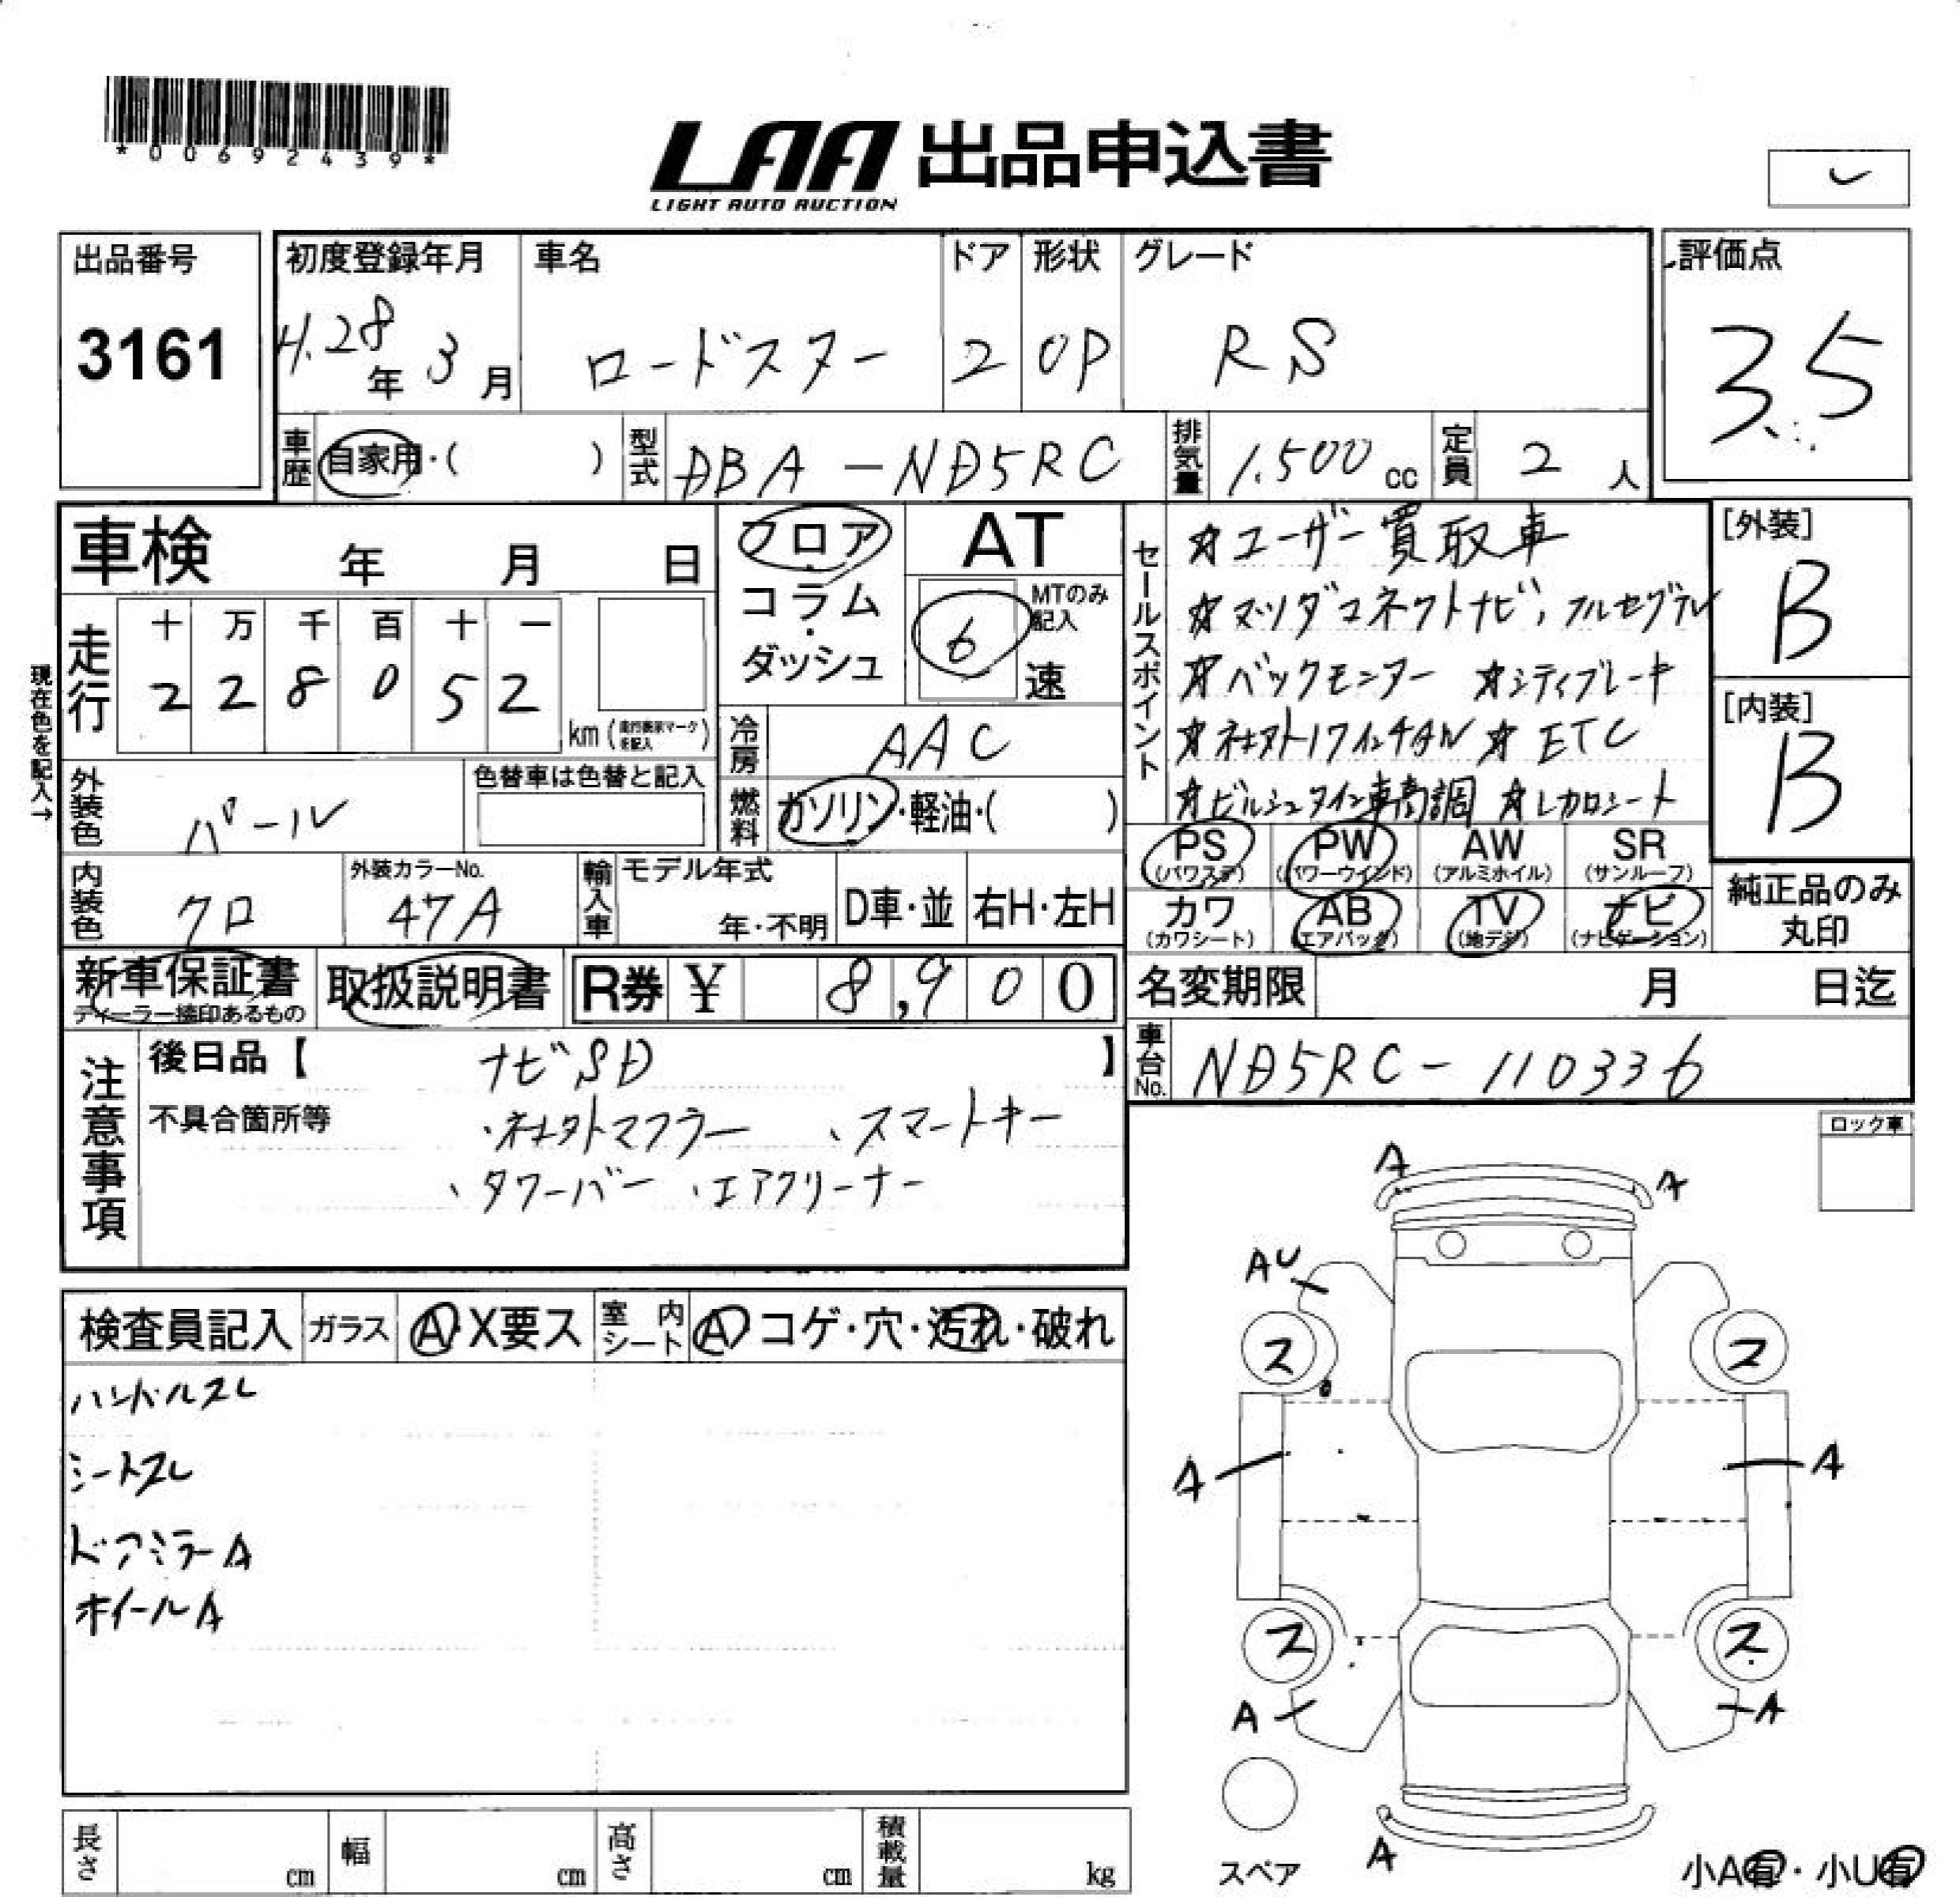 *00692439*
LAA 出品申込書
LIGHT AUTO AUCTION
レ
出品番号
3161
初度登録年月
H.28年 3月
車名
ロードスター
ドア
2
形状
OP
グレード
RS
評価点
3.5
車歴 自家用・( )
型式 DBA-ND5RC
排気量 1.500 cc
定員 2 人
車検 年 月 日
走行
十 万 千 百 十 一
2 2 8 0 5 2
km (走行表示マークを記入)
現在色を記入→
外装色 パール
色替車は色替と記入
内装色 クロ
外装カラーNo.
47A
輸入車
モデル年式
年・不明
D車・並
右H・左H
フロア・コラム・ダッシュ
AT
MTのみ記入
6 速
冷房 AAC
燃料 ガソリン・軽油・( )
セールスポイント
☆ユーザー買取車
☆マツダコネクトナビ、フルセグTV
☆バックモニター ☆シティブレーキ
☆社外17インチAW ☆ETC
☆ビルシュタイン車高調 ☆レカロシート
[外装]
B
[内装]
B
PS (パワステ)
PW (パワーウインド)
AW (アルミホイル)
SR (サンルーフ)
カワ (カワシート)
AB (エアバック)
TV (地デジ)
ナビ (ナビゲーション)
純正品のみ丸印
新車保証書
ディーラー捺印あるもの
取扱説明書
R券 ¥ 8,900
名変期限 月 日迄
車台No. ND5RC-110336
注意事項
後日品【 ナビSD 】
不具合箇所等
・社外マフラー 、スマートキー
、タワーバー 、エアクリーナー
ロック車
検査員記入
ガラス A・X要ス
室内シート A・コゲ・穴・汚れ・破れ
ハンドルスレ
シートスレ
ドアミラーA
ホイールA
A
A
AU
ス
ス
A
A
ス
ス
A
A
A
スペア
小A有・小U有
長さ cm
幅 cm
高さ cm
積載量 kg